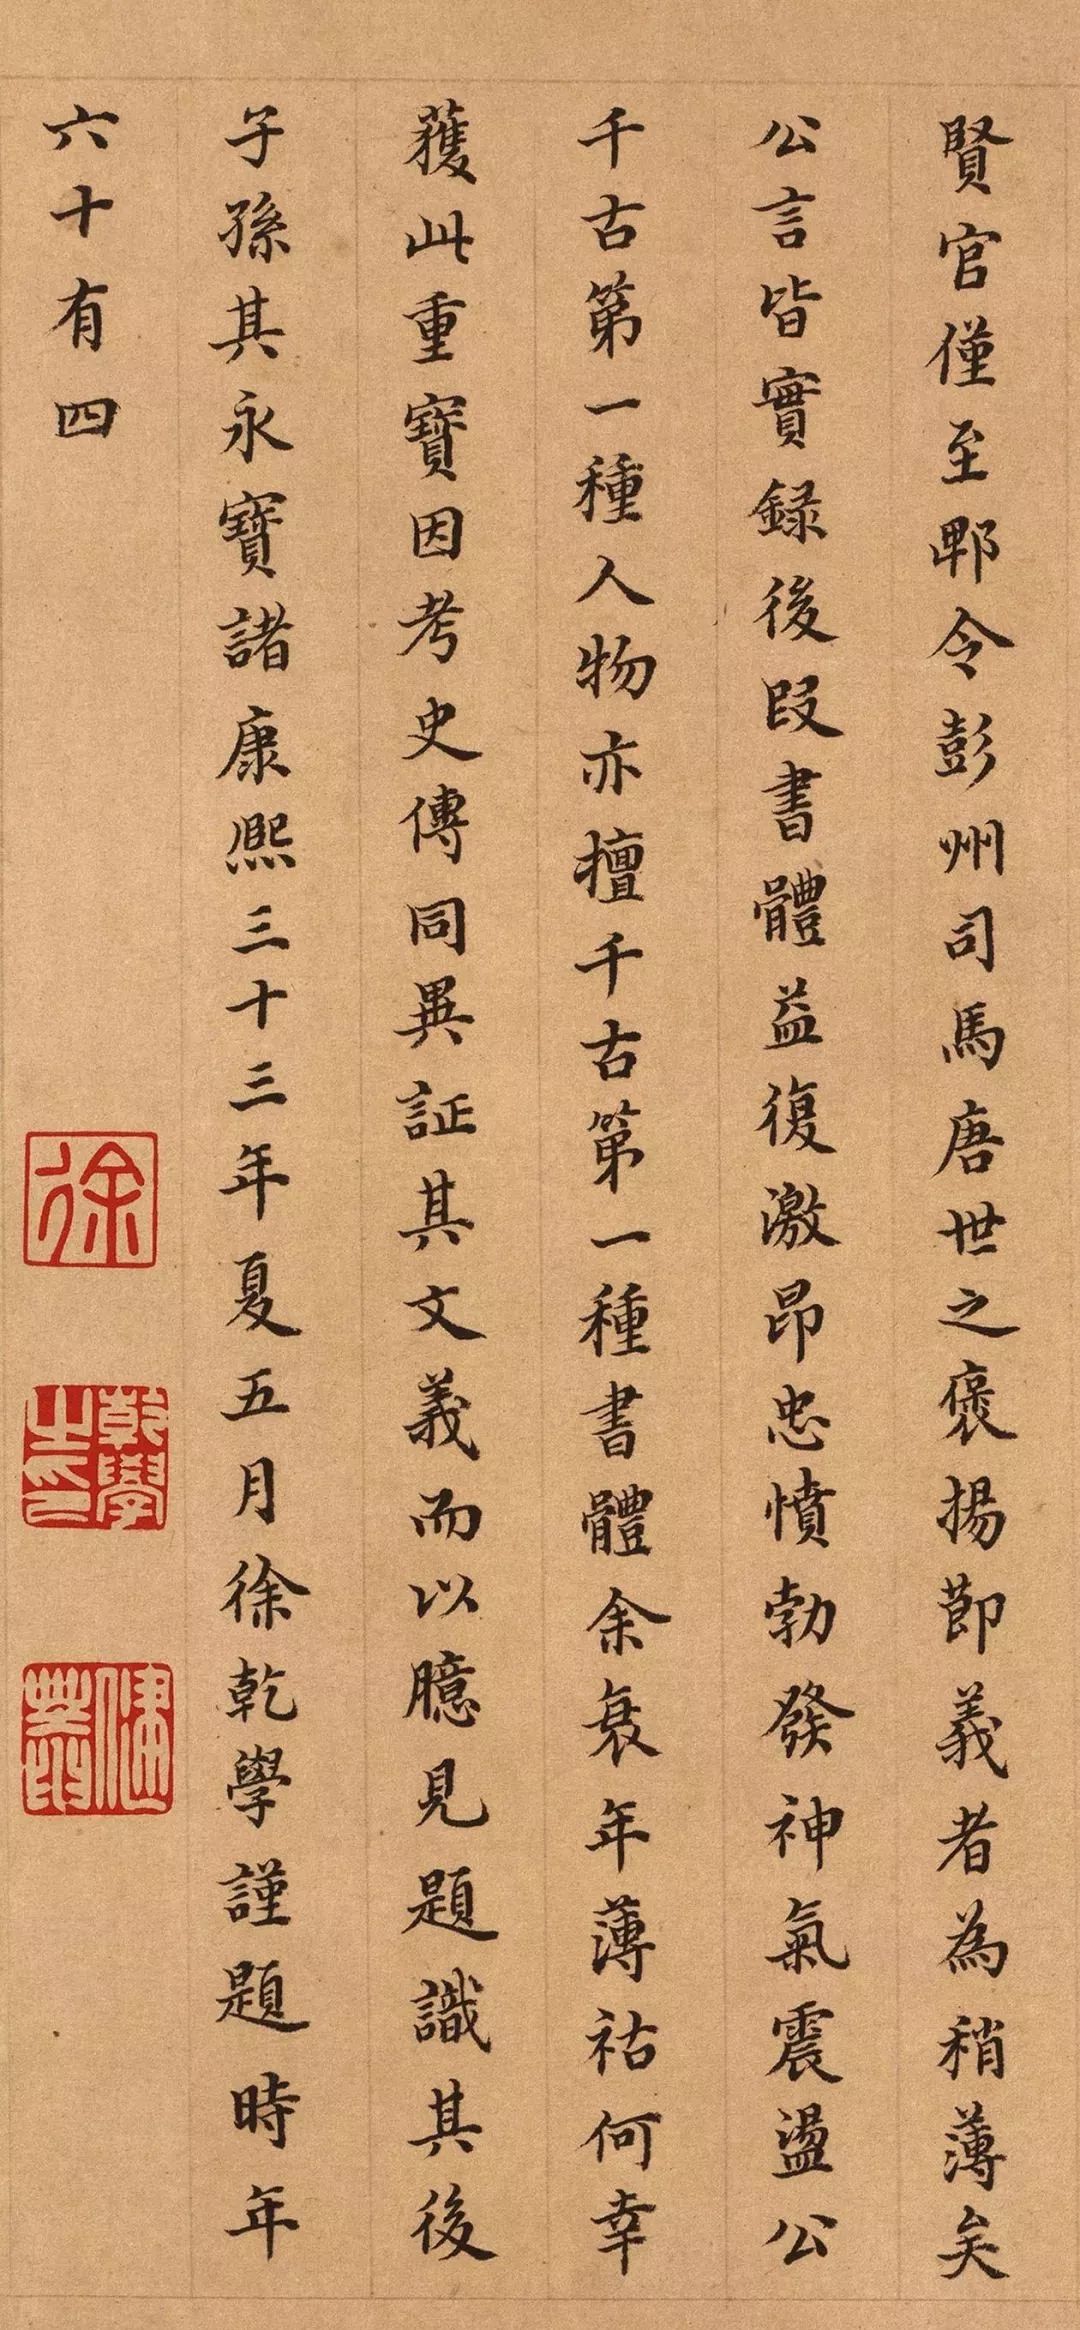 賢官僅至郫令彭州司馬唐世之褒揚節義者為稍薄矣
公言皆實録後段書體益復激昂忠憤勃發神氣震盪公
千古第一種人物亦擅千古第一種書體余衰年薄祜何幸
獲此重寶因考史傳同異証其文義而以臆見題識其後
子孫其永寶諸康熙三十三年夏五月徐乾學謹題時年
六十有四
徐
乾學之印
健菴